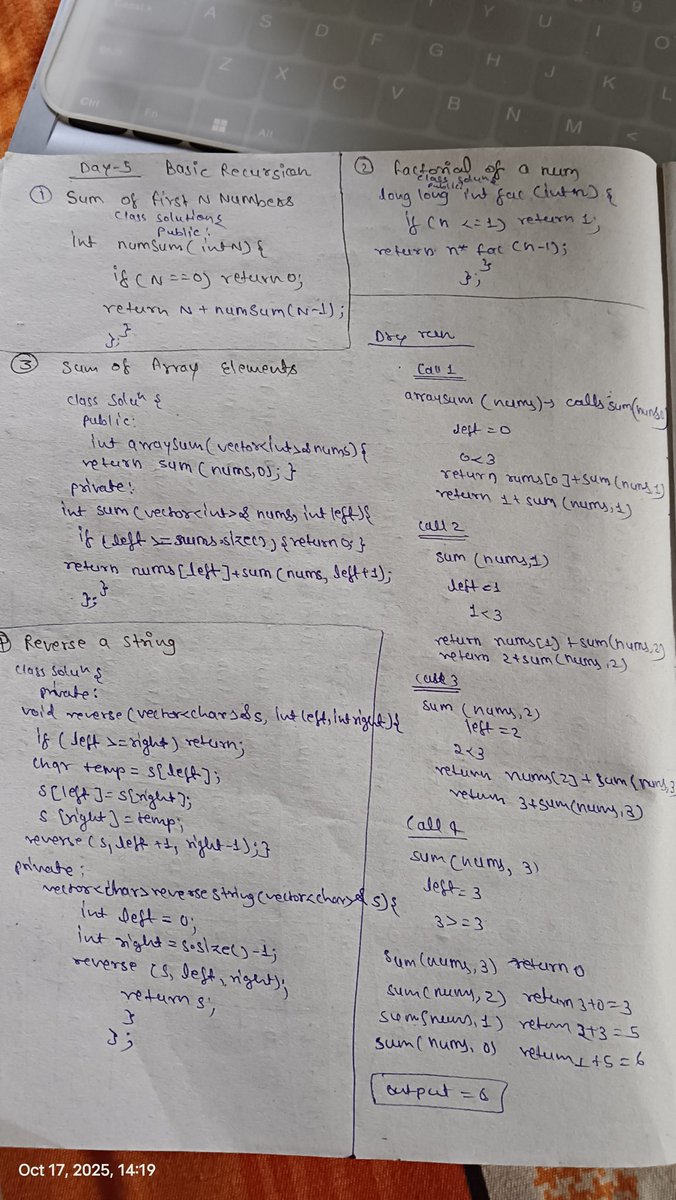 Day-5 Basic Recursion
① Sum of first N Numbers
class solution {
public:
int numsum(int N) {
if (N == 0) return 0;
return N + numsum(N-1);
}
};
② Factorial of a num
class solun {
public:
long long int fac (int n) {
if (n <= 1) return 1;
return n* fac (n-1);
}
};
③ Sum of Array Elements
class Solun {
public:
int arraysum(vector<int>& nums) {
return sum (nums, 0); }
private:
int sum (vector<int>& nums, int left) {
if (left >= nums.size()) { return 0; }
return nums[left] + sum (nums, left+1);
}
};
Reverse a String
class Solun {
private:
void reverse (vector<char>& s, int left, int right) {
if (left >= right) return;
char temp = s[left];
s[left] = s[right];
s[right] = temp;
reverse (s, left +1, right-1); }
private:
vector<char> reverse string (vector<char>& s) {
int left = 0;
int right = s.size() -1;
reverse (s, left, right);
return s;
}
};
Dry run
Call 1
arraysum (nums) → calls sum(nums,0)
left = 0
0<3
return nums[0] + sum (nums,1)
return 1 + sum (nums, 1)
call 2
sum (nums,1)
left = 1
1<3
return nums[1] + sum(nums,2)
return 2 + sum (nums, 2)
call 3
sum (nums, 2)
left = 2
2<3
return nums[2] + sum (nums,3
return 3 + sum(nums, 3)
Call 4
sum (nums, 3)
left = 3
3>=3
sum(nums, 3) return 0
sum(nums, 2) return 3+0=3
sum(nums, 1) return 2+3=5
sum(nums, 0) return 1+5=6
output = 6
Oct 17, 2025, 14:19
A
S
D
F
G
H
J
K
L
Y
U
I
O
9
Z
X
C
V
B
N
M
<
Ctrl
Fn
Alt